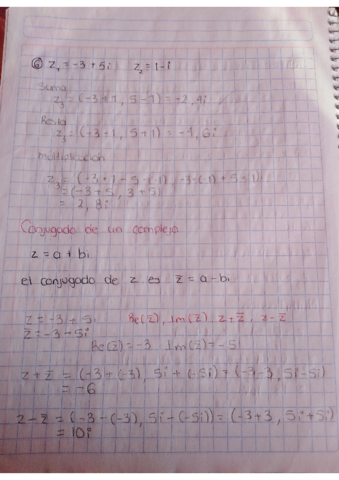 ⑥ z₁ = -3 + 5i z₂ = 1 - i
Suma
z₃ = (-3+1, 5-1) = -2, 4i
Resta
z₃ = (-3-1, 5+1) = -4, 6i
multiplicación
z₃ = (-3·1 - 5·(-1), -3·(-1) + 5·1)
= (-3+5, 3+5)
= 2, 8i
Conjugado de un complejo
z = a + bi
el conjugado de z es z̅ = a - bi
z = -3 + 5i Re(z̅), Im(z̅) z+z̅, z-z̅
z̅ = -3 - 5i
Re(z̅) = -3 Im(z̅) = -5i
z + z̅ = (-3 + (-3), 5i + (-5i)) = (-3-3, 5i-5i)
= -6
z - z̅ = (-3 - (-3), 5i - (-5i)) = (-3+3, 5i+5i)
= 10i